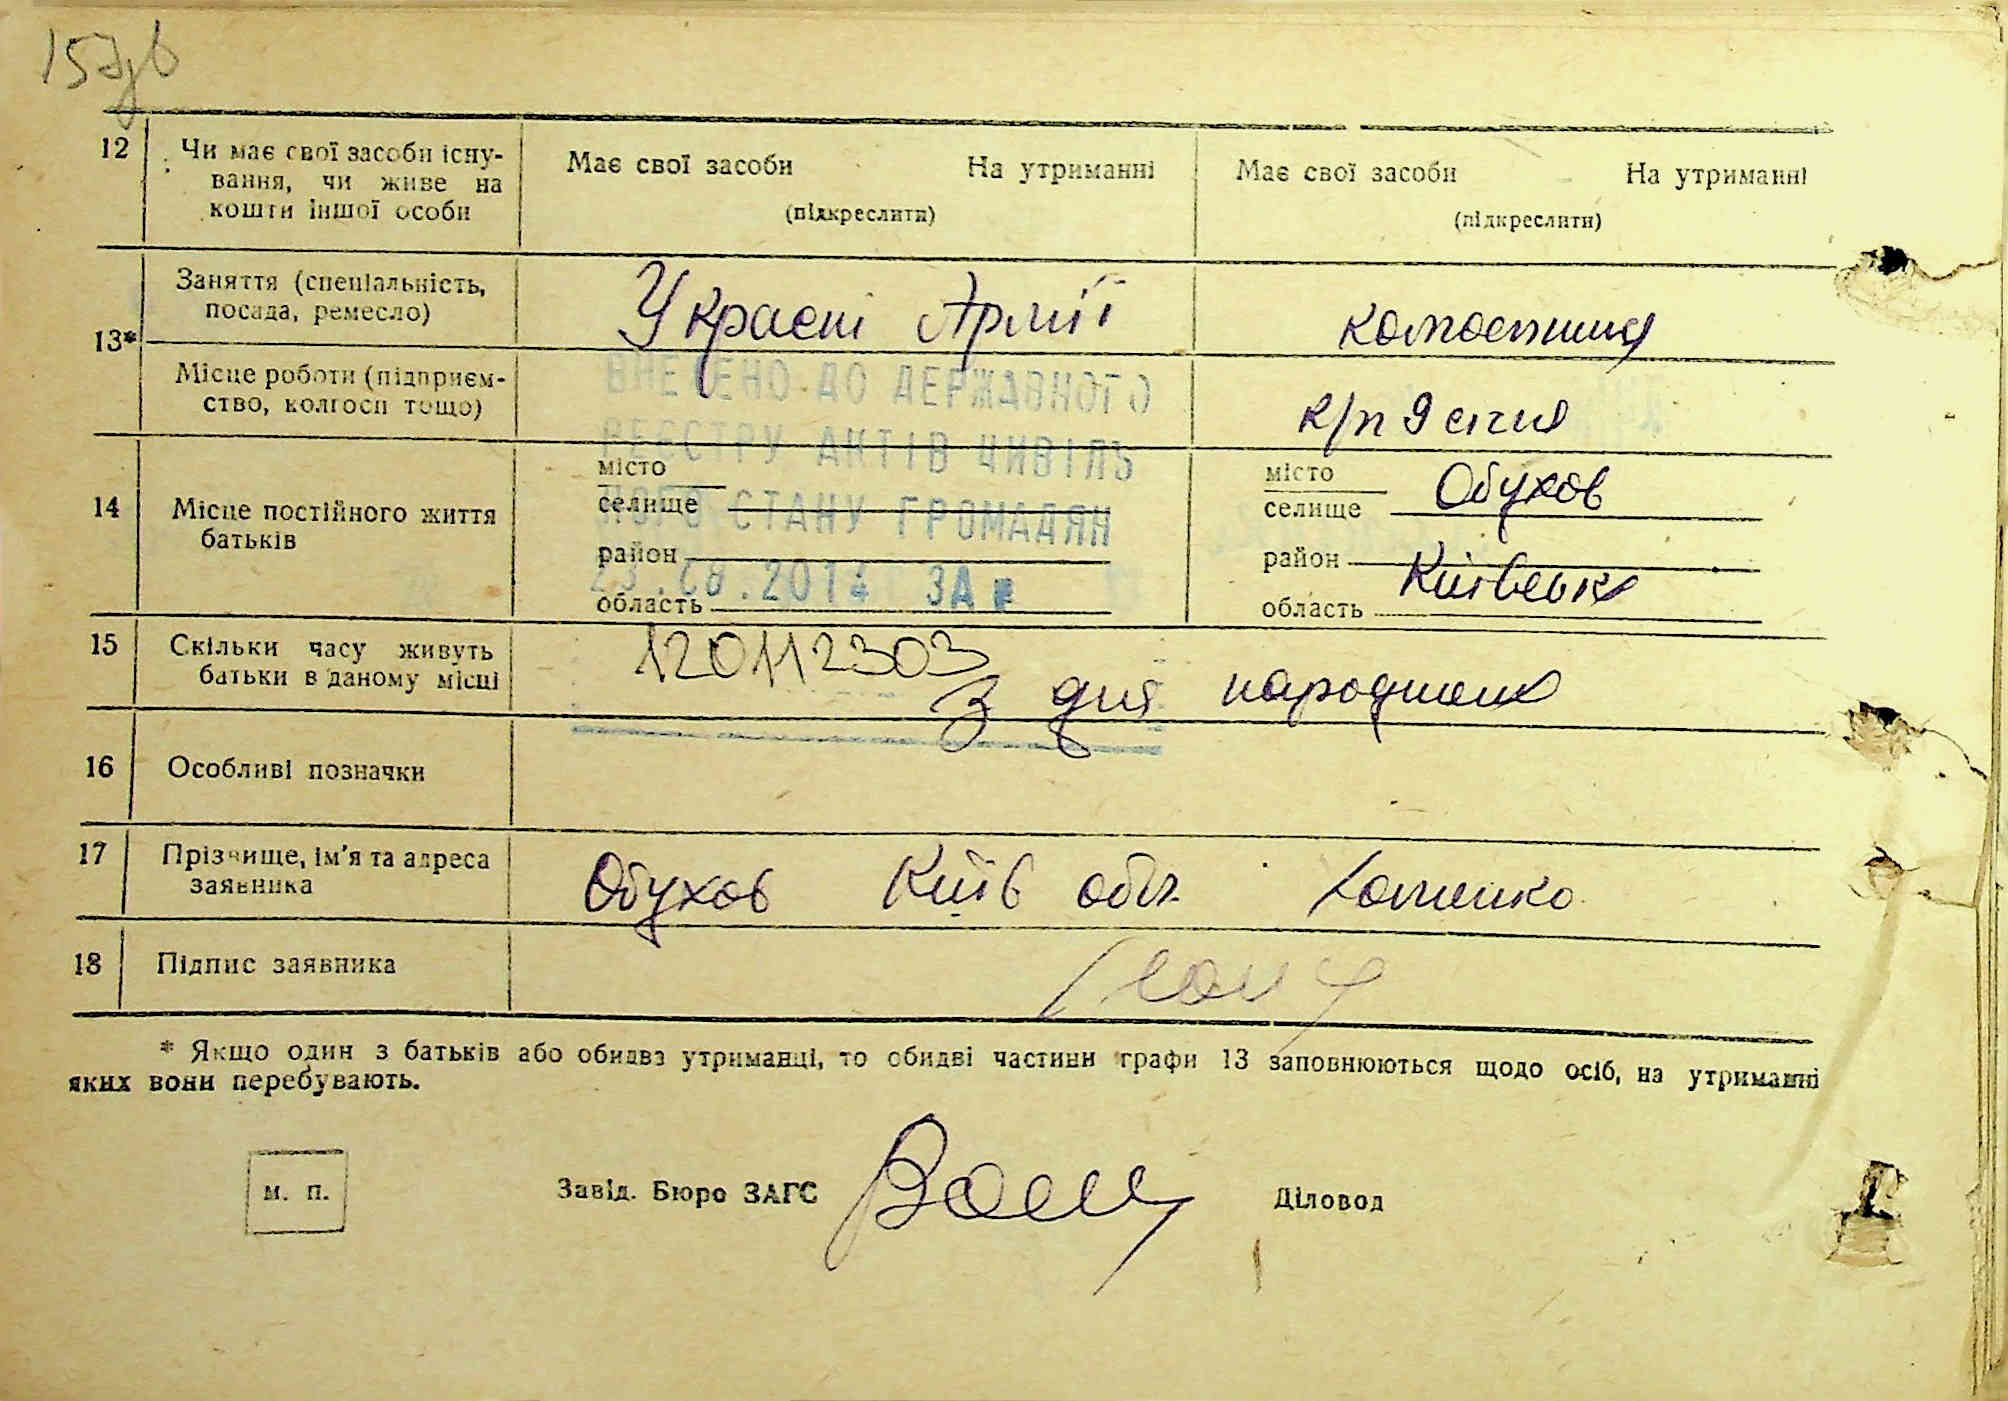 12 Чи має свої засоби існу-
вання, чи живе на
кошти іншої особи
Має свої засоби На утриманні
(підкреслити)
Має свої засоби На утриманні
(підкреслити)
13*
Заняття (спеціальність,
посада, ремесло)
Армії
Місце роботи (підприєм-
ство, колгосп тощо)
к/п 9 січня
ВНЕСЕНО ДО ДЕРЖАВНОГО
РЕЄСТРУ АКТІВ ЦИВІЛЬ
НОГО СТАНУ ГРОМАДЯН
14 Місце постійного життя
батьків
місто
селище
район
область
23.08.2014 ЗА №
місто
селище Обухов
район
область Київська
15 Скільки часу живуть
батьки в даному місці
120112303
З дня народження
16 Особливі позначки
17 Прізвище, ім'я та адреса
заявника
Обухов Київ обл.
18 Підпис заявника
* Якщо один з батьків або обидва утриманці, то обидві частини графи 13 заповнюються щодо осіб, на утриманні
яких вони перебувають.
М. П.
Завід. Бюро ЗАГС
Діловод